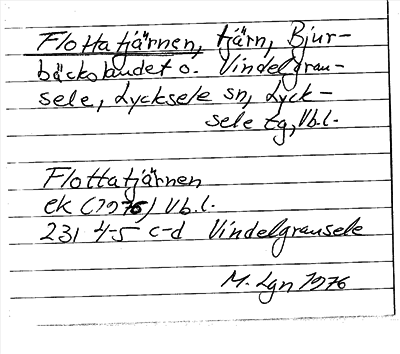 Flottatjärnen, tjärn, Bjur-
bäckslandet o. Vindelgran-
sele, Lycksele sn, Lyck-
sele tg, Vb.l.
Flottatjärnen
ek (1976) Vb.l.
231 4-5 c-d Vindelgransele
M. Lgn 1976